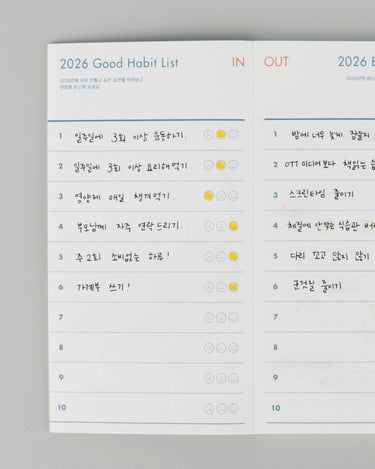 2026 Good Habit List
IN
2026년에 새로 만들고 싶은 습관을 적어보고,
연말에 회고해 보세요.
1 일주일에 3회 이상 운동하기.
2 일주일에 3회 이상 요리해먹기.
3 영양제 매일 챙겨먹기
4 부모님께 자주 연락드리기..
5 주 2회 소비없는 하루!
6 가계부 쓰기!
7
8
9
10
OUT
2026
2026년엔
1 밤에 너무 늦게 잠들지
2 OTT 미디어보다 책읽는
3 스크린타임 줄이기
4 체질에 안맞는 식습관
5 다리 꼬고 앉지 않기
6 군것질 줄이기
7
8
9
10